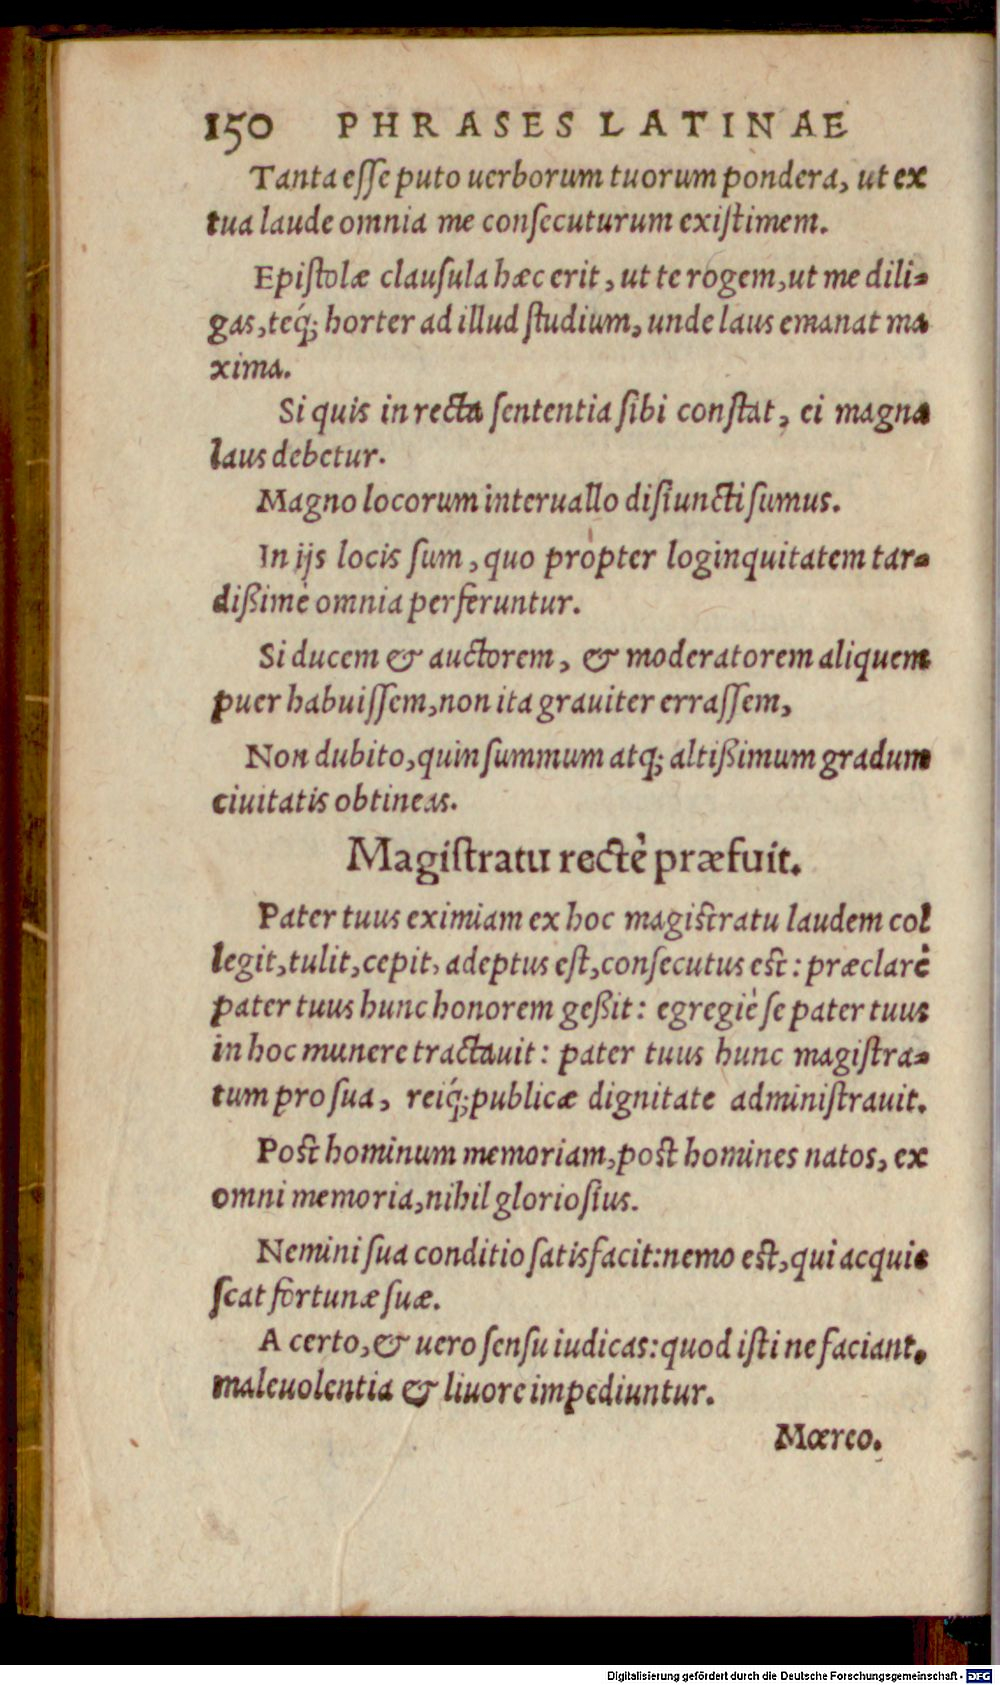 150 PHRASES LATINAE
Tanta esse puto uerborum tuorum pondera, ut ex
tua laude omnia me consecuturum existimem.
Epistolæ clausula hæc erit, ut te rogem, ut me dili-
gas, teq́; horter ad illud studium, unde laus emanat ma
xima.
Si quis in recta sententia sibi constat, ei magna
laus debetur.
Magno locorum interuallo disiuncti sumus.
In ijs locis sum, quo propter loginquitatem tar-
dißimè omnia perferuntur.
Si ducem & auctorem, & moderatorem aliquem
puer habuissem, non ita grauiter errassem,
Non dubito, quin summum atq; altißimum gradum
ciuitatis obtineas.
Magistratu rectè præfuit.
Pater tuus eximiam ex hoc magistratu laudem col
legit, tulit, cepit, adeptus est, consecutus est: præclarè
pater tuus hunc honorem geßit: egregiè se pater tuus
in hoc munere tractauit: pater tuus hunc magistra-
tum pro sua, reiq́; publicæ dignitate administrauit.
Post hominum memoriam, post homines natos, ex
omni memoria, nihil gloriosius.
Nemini sua conditio satisfacit: nemo est, qui acquie
scat fortunæ suæ.
A certo, & uero sensu iudicas: quod isti ne faciant.
maleuolentia & liuore impediuntur.
Mœreo.
Digitalisierung gefördert durch die Deutsche Forschungsgemeinschaft - DFG